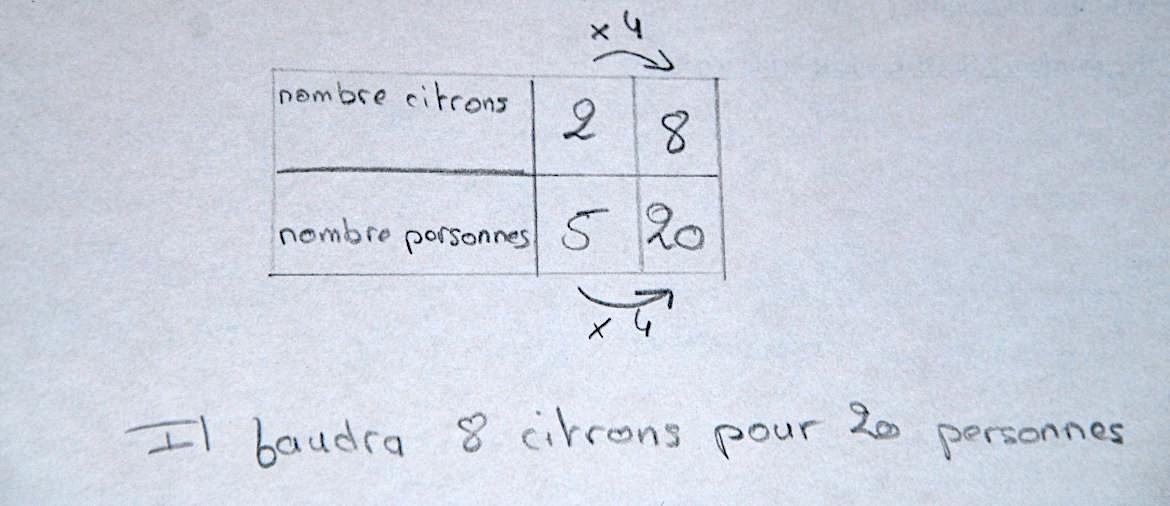 x 4
nombre citrons 2 8
nombre personnes 5 20
x 4
Il faudra 8 citrons pour 20 personnes